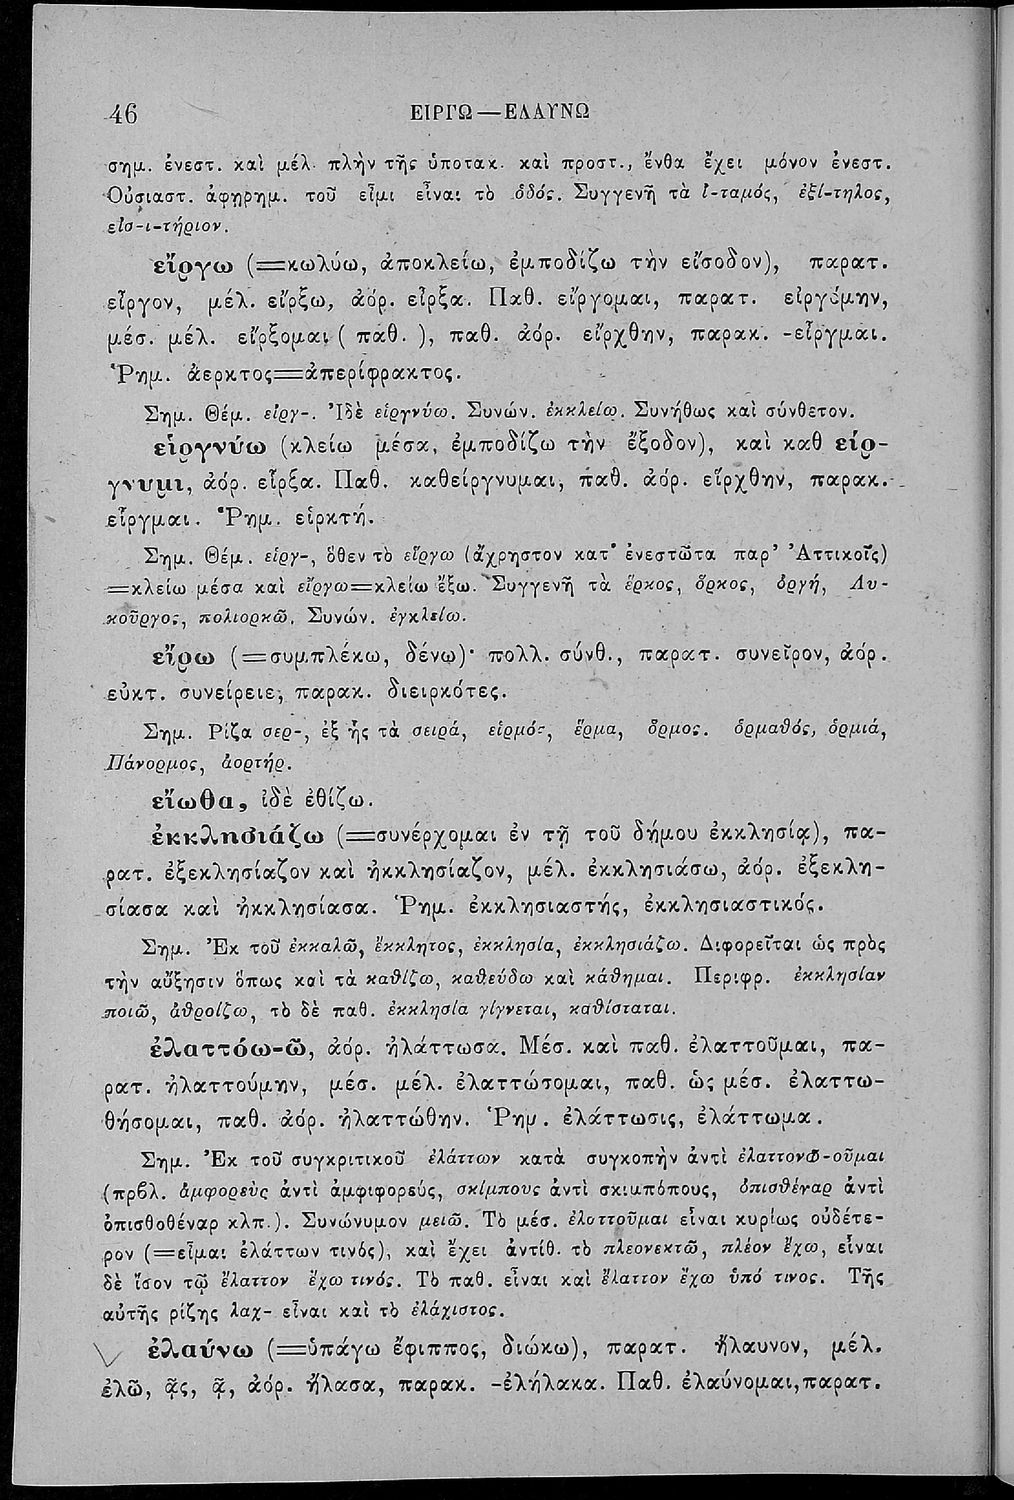 46
ΕΙΡΓΩ — ΕΛΑΥΝΩ
σημ. ἐνεστ. καὶ μέλ. πλὴν τῆς ὑποτακ. καὶ προστ., ἔνθα ἔχει μόνον ἐνεστ.
Οὐσιαστ. ἀφηρημ. τοῦ εἶμι εἶναι τὸ ὁδός. Συγγενῆ τὰ ἰ-ταμός, ἐξί-τηλος,
εἰσ-ι-τήριον.
εἴργω (=κωλύω, ἀποκλείω, ἐμποδίζω τὴν εἴσοδον), παρατ.
εἶργον, μέλ. εἴρξω, ἀόρ. εἶρξα. Παθ. εἴργομαι, παρατ. εἰργόμην,
μέσ. μέλ. εἴρξομαι ( παθ. ), παθ. ἀόρ. εἴρχθην, παρακ. -εἶργμαι.
Ῥημ. ἀερκτος=ἀπερίφρακτος.
Σημ. Θέμ. εἰργ-. Ἰδὲ εἱργνύω. Συνών. ἐκκλείω. Συνήθως καὶ σύνθετον.
εἱργνύω (κλείω μέσα, ἐμποδίζω τὴν ἔξοδον), καὶ καθ εἱρ-
γνυμι, ἀόρ. εἷρξα. Παθ. καθείργνυμαι, παθ. ἀόρ. εἵρχθην, παρακ.
εἷργμαι. Ῥημ. εἱρκτή.
Σημ. Θέμ. εἱργ-, ὅθεν τὸ εἵργω (ἄχρηστον κατ' ἐνεστῶτα παρ' Ἀττικοῖς)
=κλείω μέσα καὶ εἴργω=κλείω ἔξω. Συγγενῆ τὰ ἕρκος, ὅρκος, ὀργή, Λυ-
κοῦργος, πολιορκῶ. Συνών. ἐγκλείω.
εἴρω (=συμπλέκω, δένω)· πολλ. σύνθ., παρατ. συνεῖρον, ἀόρ.
εὐκτ. συνείρειε, παρακ. διειρκότες.
Σημ. Ρίζα σερ-, ἐξ ἧς τὰ σειρά, εἱρμός, ἕρμα, ὅρμος. ὁρμαθός, ὁρμιά,
Πάνορμος, ἀορτήρ.
εἴωθα, ἰδὲ ἐθίζω.
ἐκκλησιάζω (=συνέρχομαι ἐν τῇ τοῦ δήμου ἐκκλησίᾳ), πα-
ρατ. ἐξεκλησίαζον καὶ ἠκκλησίαζον, μέλ. ἐκκλησιάσω, ἀόρ. ἐξεκλη-
σίασα καὶ ἠκκλησίασα. Ῥημ. ἐκκλησιαστής, ἐκκλησιαστικός.
Σημ. Ἐκ τοῦ ἐκκαλῶ, ἔκκλητος, ἐκκλησία, ἐκκλησιάζω. Διφορεῖται ὡς πρὸς
τὴν αὔξησιν ὅπως καὶ τὰ καθίζω, καθεύδω καὶ κάθημαι. Περιφρ. ἐκκλησίαν
ποιῶ, ἀθροίζω, τὸ δὲ παθ. ἐκκλησία γίγνεται, καθίσταται.
ἐλαττόω-ῶ, ἀόρ. ἠλάττωσα. Μέσ. καὶ παθ. ἐλαττοῦμαι, πα-
ρατ. ἠλαττούμην, μέσ. μέλ. ἐλαττώσομαι, παθ. ὡς μέσ. ἐλαττω-
θήσομαι, παθ. ἀόρ. ἠλαττώθην. Ῥημ. ἐλάττωσις, ἐλάττωμα.
Σημ. Ἐκ τοῦ συγκριτικοῦ ἐλάττων κατὰ συγκοπὴν ἀντὶ ἐλαττον-οῦμαι
(πρβλ. ἀμφορεὺς ἀντὶ ἀμφιφορεύς, σκίμπους ἀντὶ σκιμπόπους, ὀπισθέναρ ἀντὶ
ὀπισθοθέναρ κλπ.). Συνώνυμον μειῶ. Τὸ μέσ. ἐλαττοῦμαι εἶναι κυρίως οὐδέτε-
ρον (=εἶμαι ἐλάττων τινός), καὶ ἔχει ἀντίθ. τὸ πλεονεκτῶ, πλέον ἔχω, εἶναι
δὲ ἴσον τῷ ἔλαττον ἔχω τινός. Τὸ παθ. εἶναι καὶ ἔλαττον ἔχω ὑπό τινος. Τῆς
αὐτῆς ρίζης λαχ- εἶναι καὶ τὸ ἐλάχιστος.
ἐλαύνω (=ὑπάγω ἔφιππος, διώκω), παρατ. ἤλαυνον, μέλ.
ἐλῶ, ᾷς, ᾷ, ἀόρ. ἤλασα, παρακ. -ἐλήλακα. Παθ. ἐλαύνομαι, παρατ.